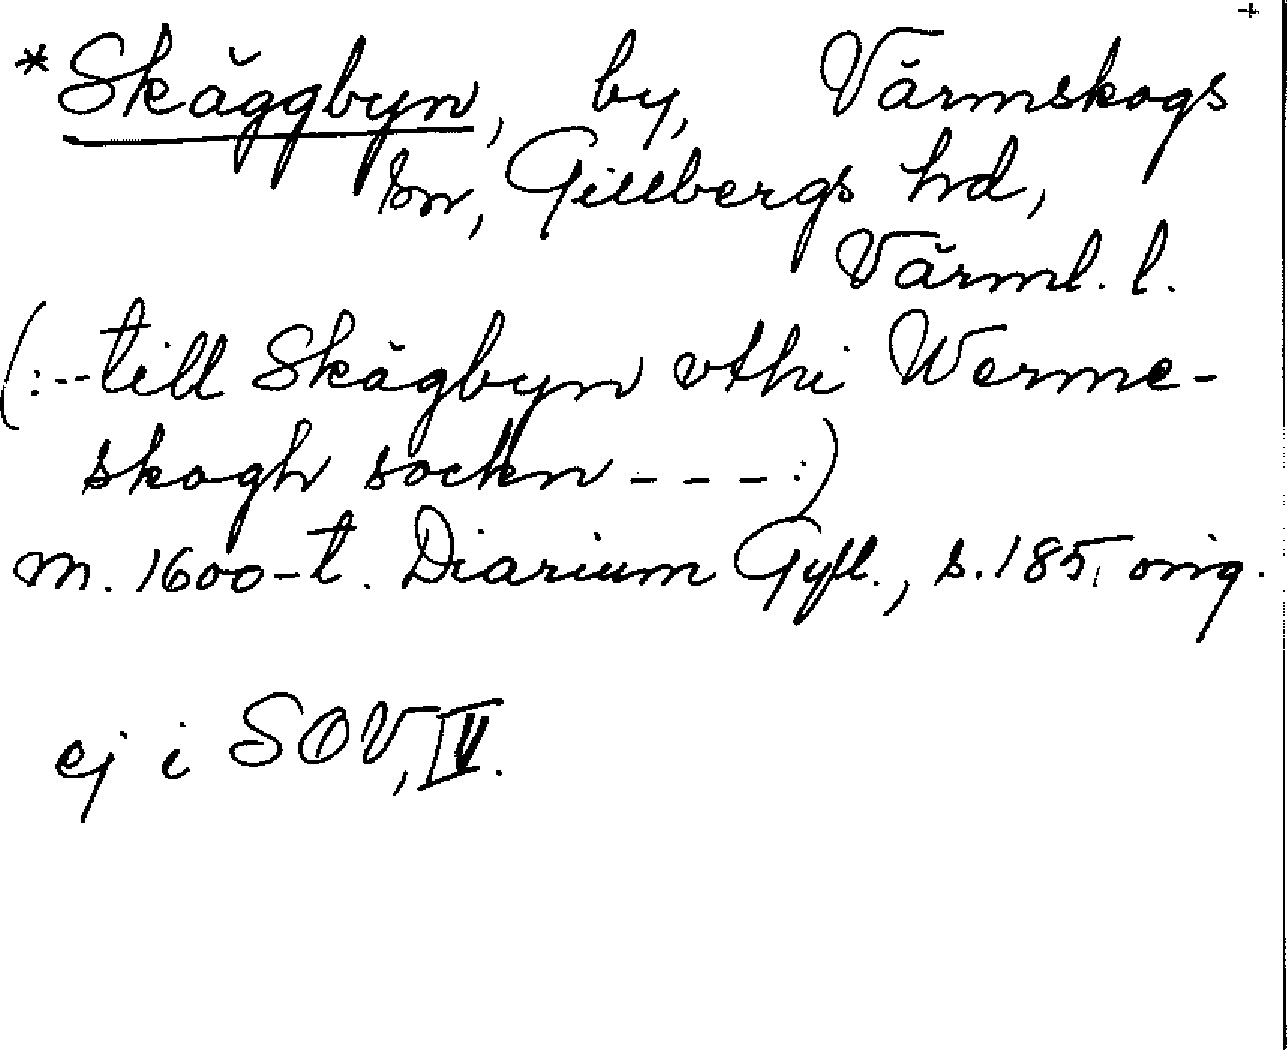 +
*Skäggbyn, by, Värmskogs
sn, Gillbergs hd,
Värml. l.
(:--till Skägbyn vthi Werme-
skogh sockn - - - :)
m. 1600-t. Diarium Gyll., s. 185, orig.
ej i SOV, IV.